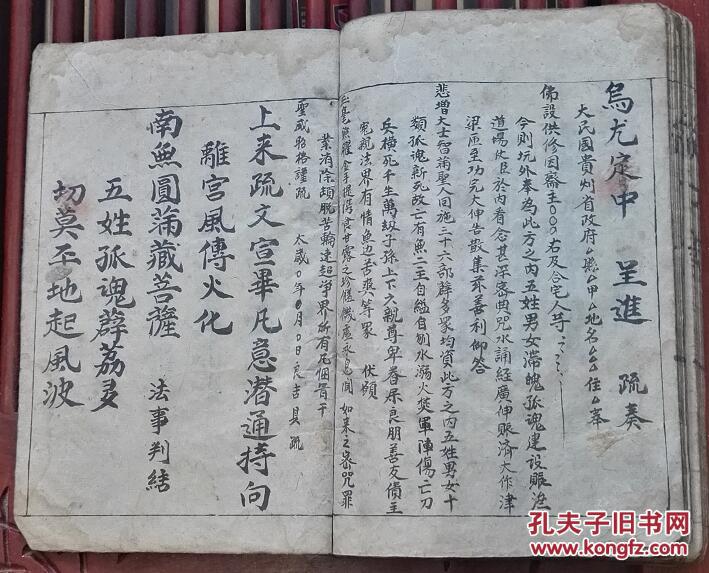 烏尤定中 呈進 疏奏
大民國貴州省政府厶縣厶甲厶地名厶厶厶住厶奉
佛設供修因齋主〇〇〇右及合宅人等
今則玩外奉為此方之內五姓男女滯魄孤魂建設賑濟
道場 臣於內看念甚深密典咒水誦經廣伸賑濟大作津
梁 至功完大伸告散集茲善利仰答
悲增大士智滿聖人回施三十六部薜多眾均資此方之內五姓男女十
類孤魂新死故亡有無二主自縊自刎水溺火焚軍陣傷亡刀
兵橫死千生萬劫子孫上下六親尊卑眷屬良朋善友債主
冤親法界有情無边苦爽等眾 伏願
無 手提得食甘露之珍 如來之密咒罪
業消除頓脫苦輪速超淨界所有 干
聖威 格謹疏 太歲〇年〇月〇日良吉具疏
上来疏文宣畢凡意潛通持向
離宮風傳火化
南無圓滿藏菩薩 法事判結
五姓孤魂薜荔多
切莫平地起風波
孔夫子旧书网
www.kongfz.com